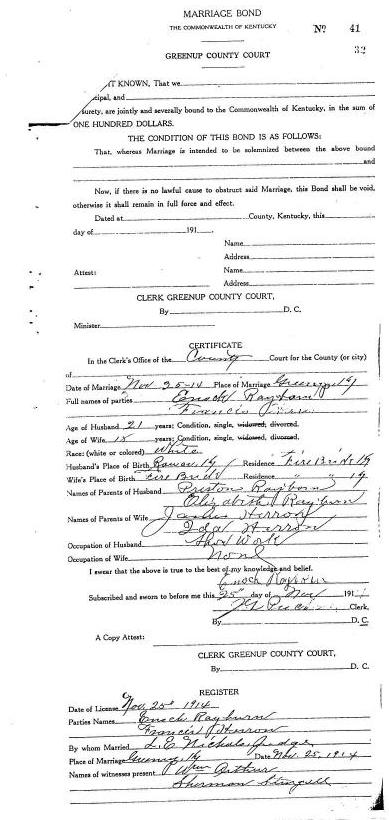 MARRIAGE BOND
THE COMMONWEALTH OF KENTUCKY
No. 41
32
GREENUP COUNTY COURT
IT KNOWN, That we
cipal, and
surety, are jointly and severally bound to the Commonwealth of Kentucky, in the sum of
ONE HUNDRED DOLLARS.
THE CONDITION OF THIS BOND IS AS FOLLOWS:
That, whereas Marriage is intended to be solemnized between the above bound
and
Now, if there is no lawful cause to obstruct said Marriage, this Bond shall be void,
otherwise it shall remain in full force and effect.
Dated at County, Kentucky, this
day of 191
Name
Address
Attest: Name
Address
CLERK GREENUP COUNTY COURT,
By D. C.
Minister
CERTIFICATE
In the Clerk's Office of the County Court for the County (or city)
of
Date of Marriage Nov 25-14 Place of Marriage Greenup Ky
Full names of parties Enoch Rayburn
Francis
Age of Husband 21 years; Condition, single, widowed, divorced.
Age of Wife 18 years; Condition, single, widowed, divorced.
Race: (white or colored) White
Husband's Place of Birth Rowan Ky Residence Fire Brick Ky
Wife's Place of Birth Fire Brick Residence " Ky
Names of Parents of Husband Preston Rayburn
Elizabeth Rayburn
Names of Parents of Wife James Herron
Ida Herron
Occupation of Husband Shoe Work
Occupation of Wife None
I swear that the above is true to the best of my knowledge and belief.
Enoch Rayburn
Subscribed and sworn to before me this 25" day of Nov 191
Clerk,
By D. C.
A Copy Attest:
CLERK GREENUP COUNTY COURT,
By D. C.
REGISTER
Date of License Nov 25" 1914
Parties Names Enoch Rayburn
Francis Herron
By whom Married L. E. Nichols Judge
Place of Marriage Greenup Ky Date Nov. 25, 1914
Names of witnesses present Wm Arthur
Sherman